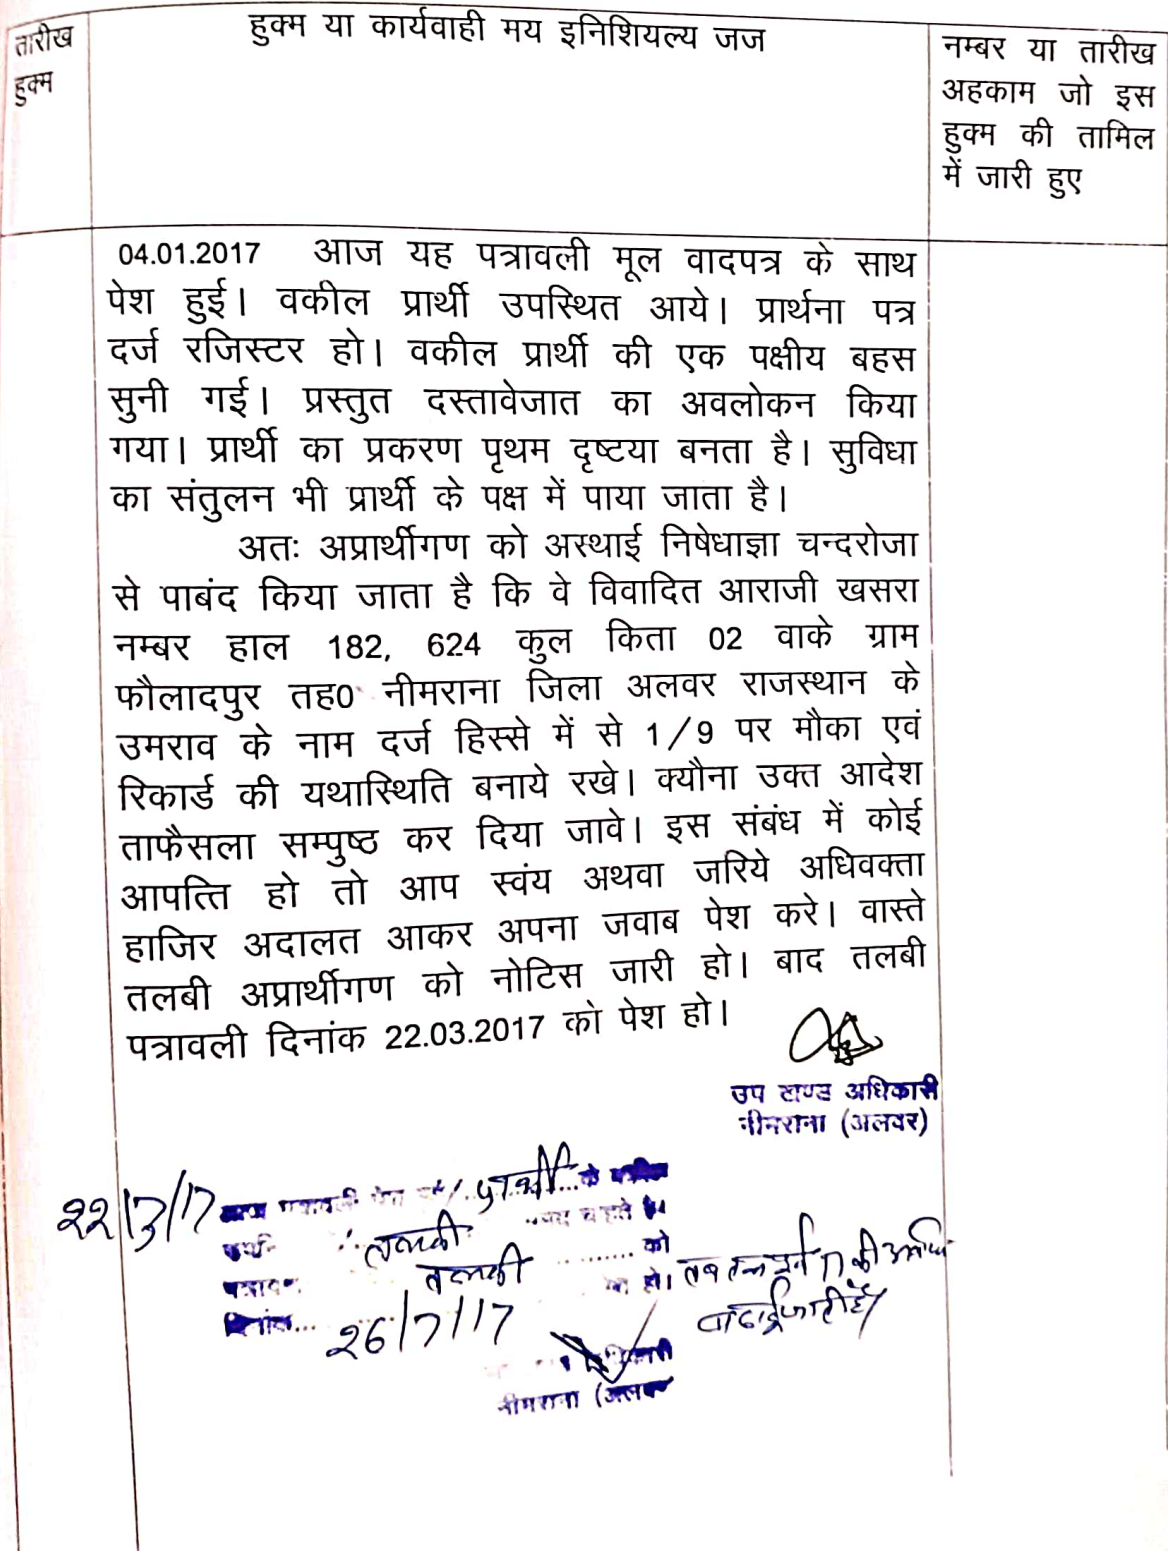 तारीख
हुक्म
हुक्म या कार्यवाही मय इनिशियल्य जज
नम्बर या तारीख
अहकाम जो इस
हुक्म की तामिल
में जारी हुए
04.01.2017 आज यह पत्रावली मूल वादपत्र के साथ
पेश हुई। वकील प्रार्थी उपस्थित आये। प्रार्थना पत्र
दर्ज रजिस्टर हो। वकील प्रार्थी की एक पक्षीय बहस
सुनी गई। प्रस्तुत दस्तावेजात का अवलोकन किया
गया। प्रार्थी का प्रकरण पृथम दृष्टया बनता है। सुविधा
का संतुलन भी प्रार्थी के पक्ष में पाया जाता है।
अतः अप्रार्थीगण को अस्थाई निषेधाज्ञा चन्दरोजा
से पाबंद किया जाता है कि वे विवादित आराजी खसरा
नम्बर हाल 182, 624 कुल किता 02 वाके ग्राम
फौलादपुर तह0 नीमराना जिला अलवर राजस्थान के
उमराव के नाम दर्ज हिस्से में से 1/9 पर मौका एवं
रिकार्ड की यथास्थिति बनाये रखे। क्यौना उक्त आदेश
ताफैसला सम्पुष्ठ कर दिया जावे। इस संबंध में कोई
आपत्ति हो तो आप स्वंय अथवा जरिये अधिवक्ता
हाजिर अदालत आकर अपना जवाब पेश करे। वास्ते
तलबी अप्रार्थीगण को नोटिस जारी हो। बाद तलबी
पत्रावली दिनांक 22.03.2017 को पेश हो।
उप खण्ड अधिकारी
नीमराना (अलवर)
22/3/17 पत्रावली पेश प्रार्थी के वकील
तलबी चाहते है।
तलबी को
हो। तब तक पूर्व की अवधि
दिनांक... 26/7/17 बढाई जाती है
नीमराना (अलवर